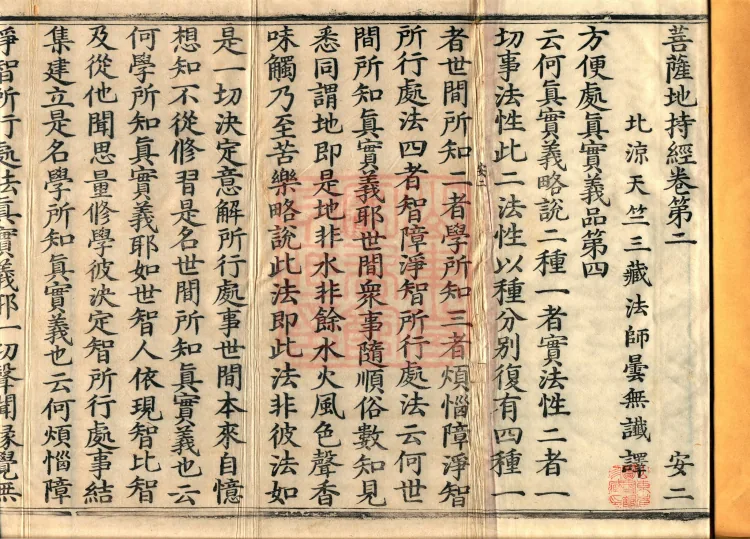 菩薩地持經卷第二 安二
北涼天竺三藏法師曇無讖譯
方便處真實義品第四
云何真實義略說二種一者實法性二者一
切事法性此二法性以種分別復有四種一
安二
者世間所知二者學所知三者煩惱障淨智
所行處法四者智障淨智所行處法云何世
間所知真實義耶世間眾事隨順俗數知見
悉同謂地即是地非水非餘水火風色聲香
味觸乃至苦樂略說此法即此法非彼法如
是一切決定意解所行處事世間本來自憶
想知不從修習是名世間所知真實義也云
何學所知真實義耶如世智人依現智比智
及從他聞思量修學彼決定智所行處事結
集建立是名學所知真實義也云何煩惱障
淨智所行處法真實義耶一切聲聞緣覺無